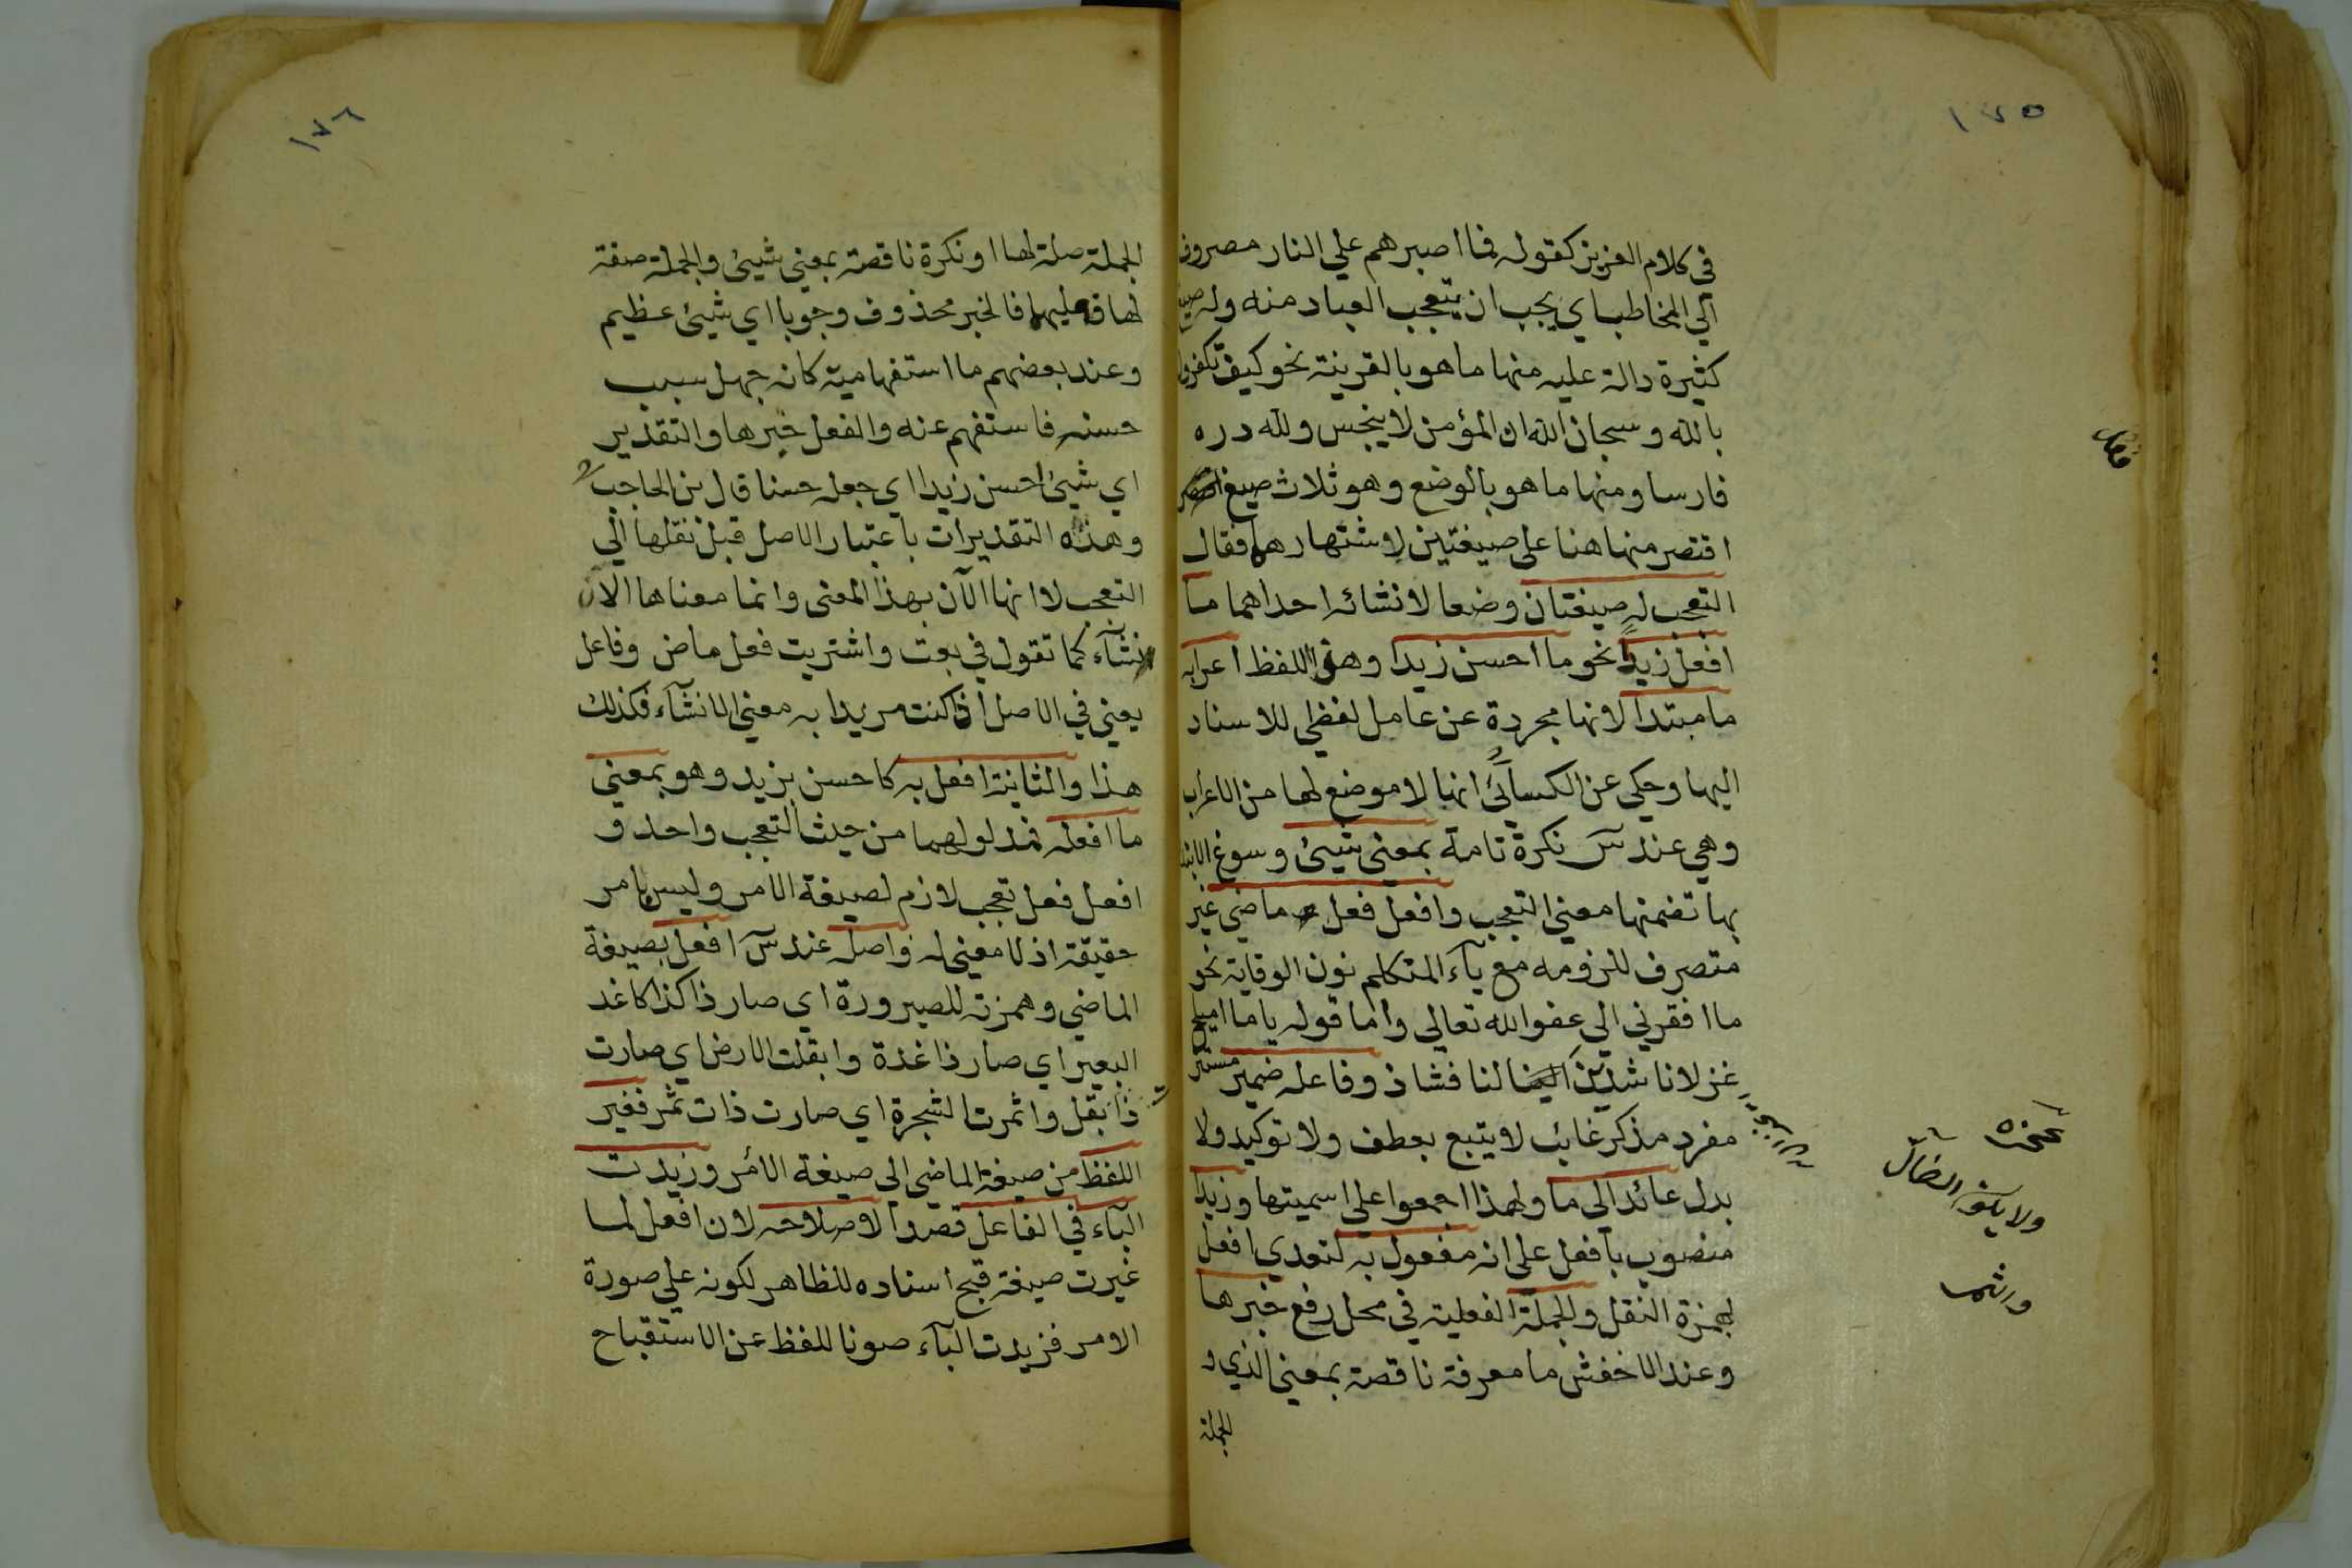 ١٧٥
في كلام العزيز كقوله فما اصبرهم علي النار مصروف
الي المخاطب اي يجب ان يتعجب العباد منه وله صيغ
كثيرة دالة عليه منها ما هو بالقرينة نحو كيف تكفرون
بالله وسبحان الله ان المؤمن لا ينجس ولله دره
فارسا ومنها ما هو بالوضع وهو ثلاث صيغ
اقتصر منها هنا على صيغتين لاشتهارهما فقال
التعجب له صيغتان وضعا لانشائه احداهما ما
افعل زيدا نحو ما احسن زيدا وهذا اللفظ اعرابه
ما مبتدا لانها مجردة عن عامل لفظي للاسناد
اليها وحكي عن الكسائي انها لا موضع لها من الاعراب
وهي عند س نكرة تامة بمعني شيئ وسوغ الابتدا
بها تضمنها معني التعجب وافعل فعل ماضي غير
متصرف للزومه مع يآء المتكلم نون الوقاية نحو
ما افقرني الي عفو الله تعالي واما قوله ياما اميلح
غزلانا شدن لنا فشاذ وفاعله ضمير مستتر
مفرد مذكر غائب لا يتبع بعطف ولا توكيد ولا
بدل عائد الي ما ولهذا اجمعوا علي اسميتها وزيدا
منصوب بافعل على انه مفعول به لتعدي افعل
بهمزة النقل والجملة الفعلية في محل رفع خبرها
وعند الاخفش ما معرفة ناقصة بمعني الذي و
الجملة
ولا يكون
١٧٦
الجملة صلة لها او نكرة ناقصة بمعني شيئ والجملة صفة
لها فعليهما فالخبر محذوف وجوبا اي شيئ عظيم
وعند بعضهم ما استفهامية كانه جهل سبب
حسنه فاستفهم عنه والفعل خبرها والتقدير
اي شيئ احسن زيدا اي جعله حسنا قال بن الحاجب
وهذه التقديرات باعتبار الاصل قبل نقلها الي
التعجب لا انها الآن بهذا المعني وانما معناها الان
انشآء كما تقول في بعت واشتريت فعل ماض وفاعل
يعني في الاصل اذا كنت مريدا به معني الانشآء فكذلك
هذا والثانية افعل به كاحسن بزيد وهو بمعني
ما افعله فمدلولهما من حيث التعجب واحد و
افعل فعل تعجب لازم لصيغة الامر وليس بامر
حقيقة اذ لا معني له واصله عند س افعل بصيغة
الماضي وهمزته للصيرورة اي صار ذا كذا كاغد
البعير اي صار ذا غدة وابقلت الارض اي صارت
ذا بقل واثمرت الشجرة اي صارت ذات ثمر فغير
اللفظ من صيغة الماضي الي صيغة الامر وزيدت
البآء في الفاعل قصدا لاصلاحه لان افعل لما
غيرت صيغة قبح اسناده للظاهر لكونه علي صورة
الامر فزيدت البآء صونا للفظ عن الاستقباح